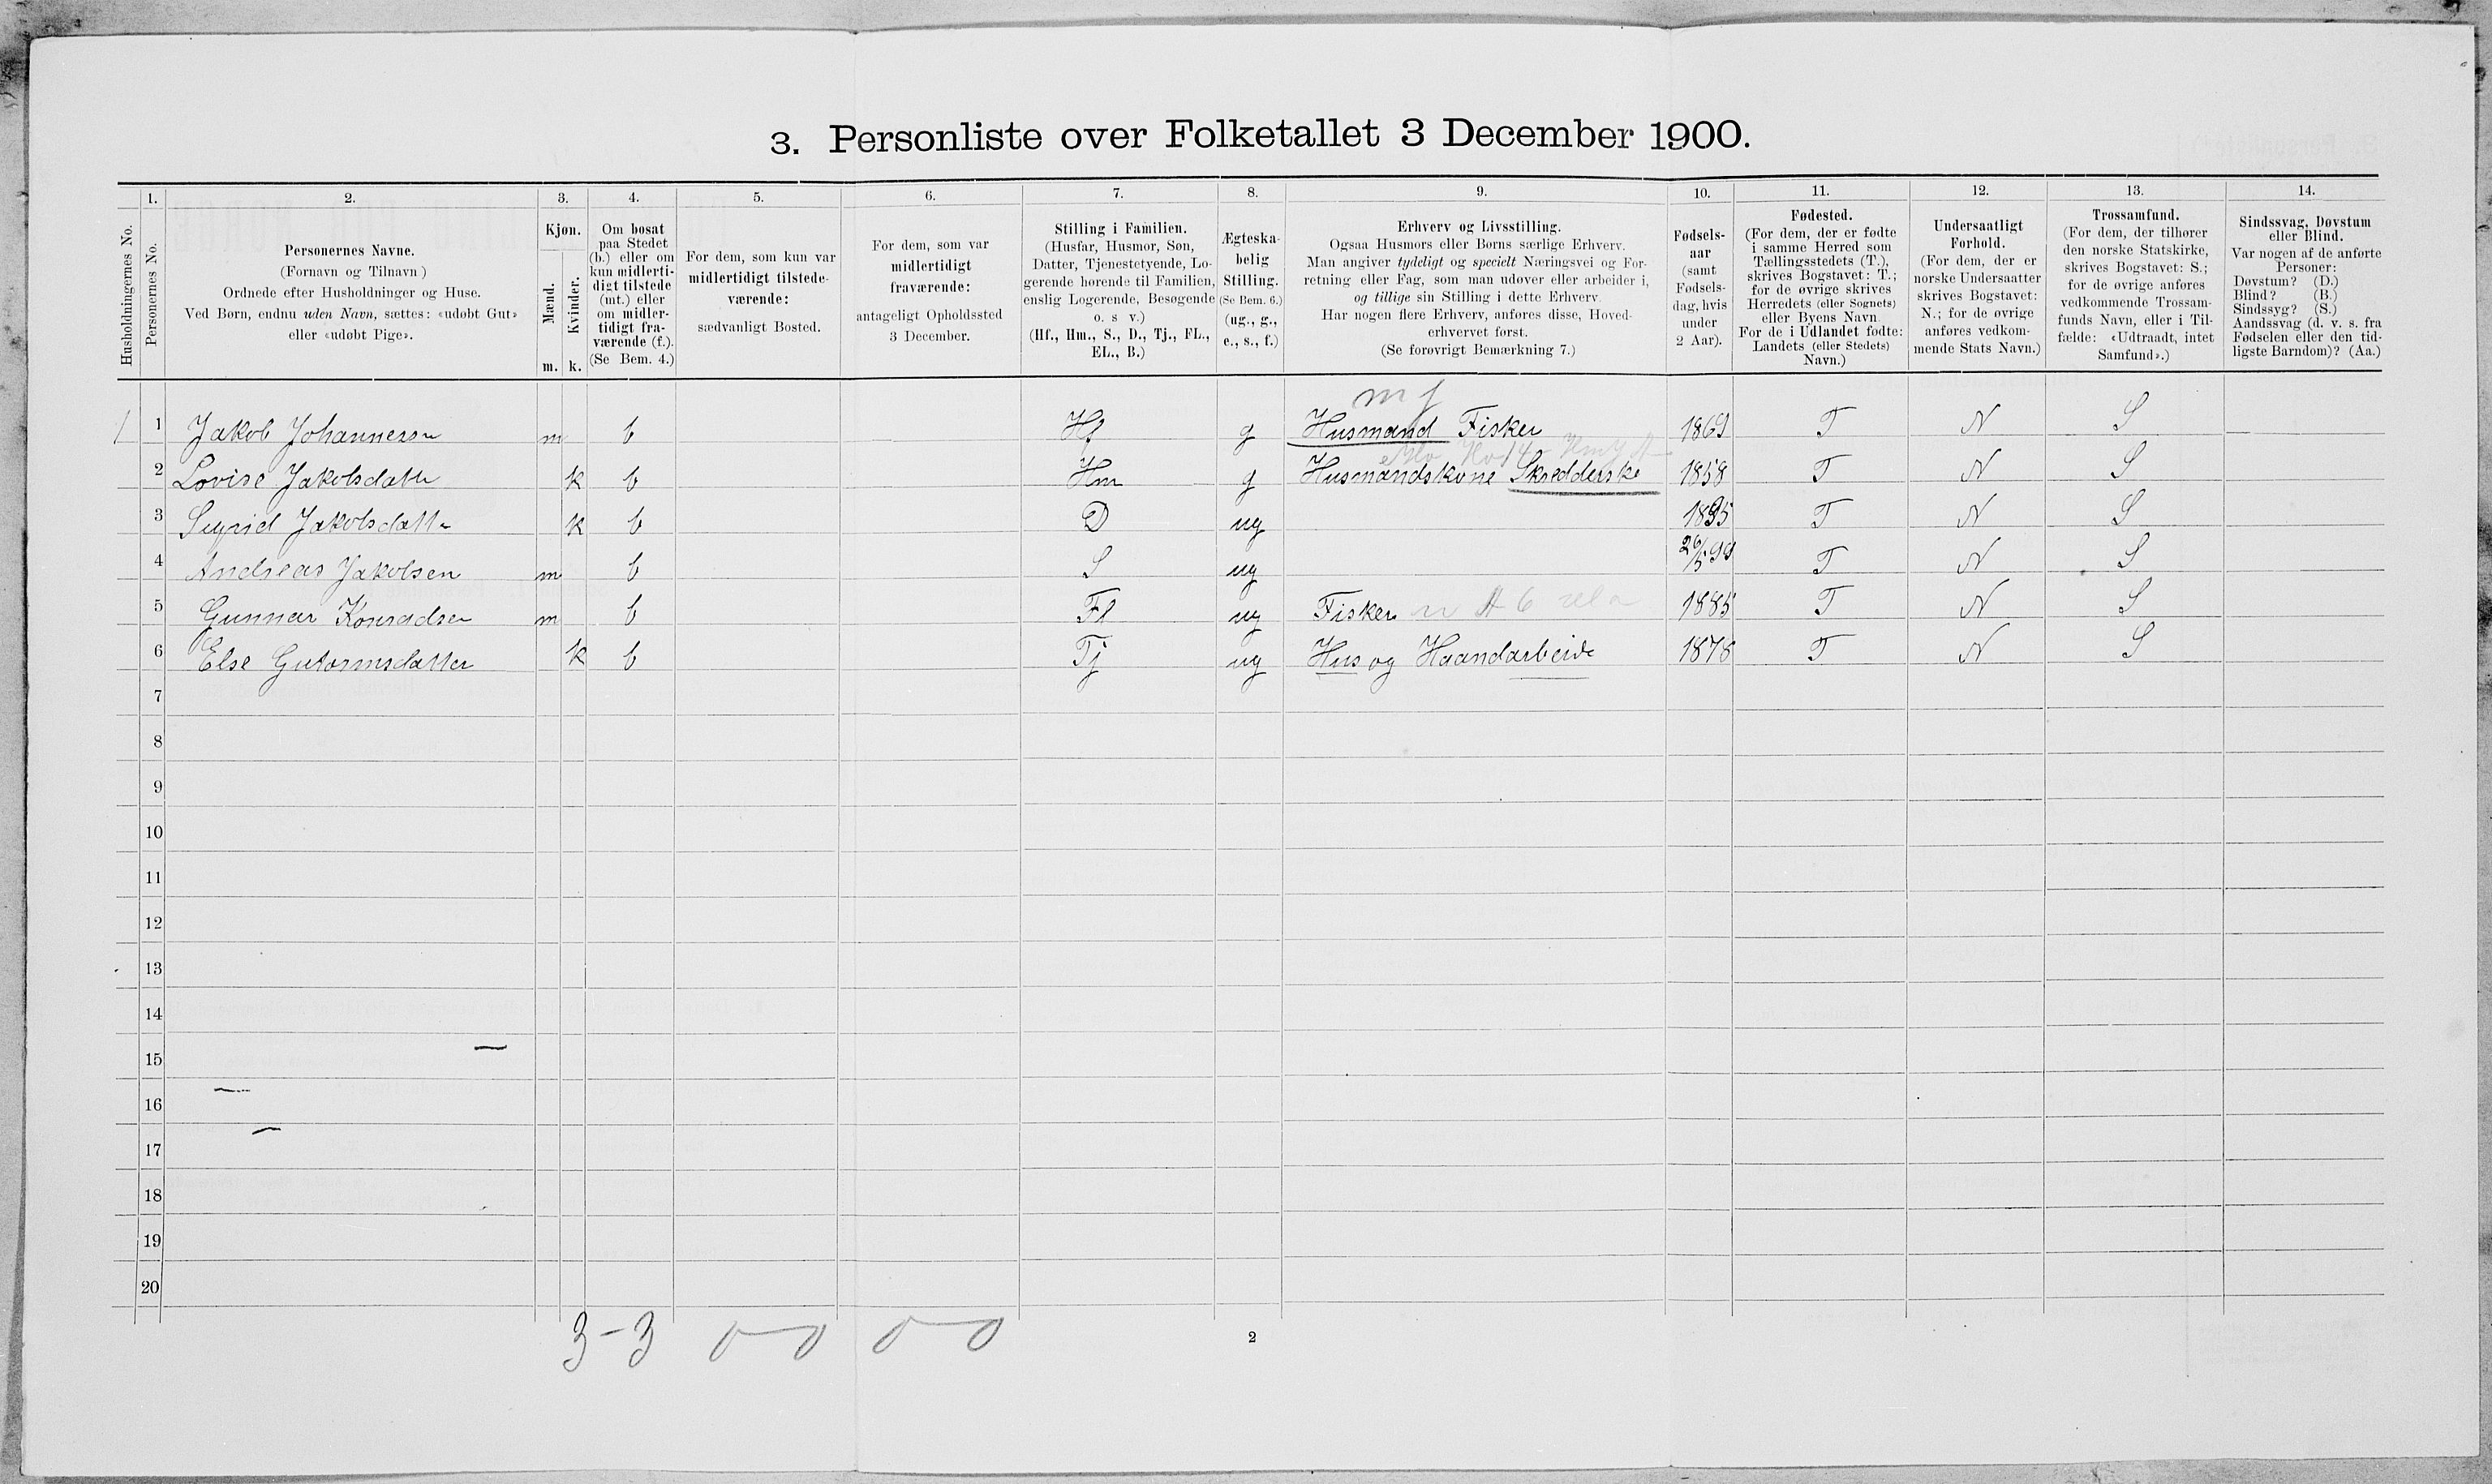 3. Personliste over Folketallet 3 December 1900.
1. 2. 3. 4. 5. 6. 7. 8. 9. 10. 11. 12. 13. 14.
Husholdningernes No.
Personernes No.
Personernes Navne.
(Fornavn og Tilnavn)
Ordnede efter Husholdninger og Huse.
Ved Børn, endnu uden Navn, sættes: «udøbt Gut»
eller «udøbt Pige».
Kjøn.
Mænd.
Kvinder.
m. k.
Om bosat
paa Stedet
(b.) eller om
kun midlerti-
digt tilstede
(mt.) eller
om midler-
tidigt fra-
værende (f.).
(Se Bem. 4.)
For dem, som kun var
midlertidigt tilstede-
værende:
sædvanligt Bosted.
For dem, som var
midlertidigt
fraværende:
antageligt Opholdssted
3 December.
Stilling i Familien.
(Husfar, Husmor, Søn,
Datter, Tjenestetyende, Lo-
gerende hørende til Familien,
enslig Logerende, Besøgende
o. s v.)
(Hf., Hm., S., D., Tj., FL.,
EL., B.)
Ægteska-
belig
Stilling.
(Se Bem. 6.)
(ug., g.,
e., s., f.)
Erhverv og Livsstilling.
Ogsaa Husmors eller Børns særlige Erhverv.
Man angiver tydeligt og specielt Næringsvei og For-
retning eller Fag, som man udøver eller arbeider i,
og tillige sin Stilling i dette Erhverv.
Har nogen flere Erhverv, anføres disse, Hoved-
erhvervet først.
(Se forøvrigt Bemærkning 7.)
Fødsels-
aar
(samt
Fødsels-
dag, hvis
under
2 Aar).
Fødested.
(For dem, der er fødte
i samme Herred som
Tællingsstedets (T.),
skrives Bogstavet: T.;
for de øvrige skrives
Herredets (eller Sognets)
eller Byens Navn.
For de i Udlandet fødte:
Landets (eller Stedets)
Navn.)
Undersaatligt
Forhold.
(For dem, der er
norske Undersaatter
skrives Bogstavet:
N.; for de øvrige
anføres vedkom-
mende Stats Navn.)
Trossamfund.
(For dem, der tilhører
den norske Statskirke,
skrives Bogstavet: S.;
for de øvrige anføres
vedkommende Trossam-
funds Navn, eller i Til-
fælde: «Udtraadt, intet
Samfund».)
Sindssvag, Døvstum
eller Blind.
Var nogen af de anførte
Personer:
Døvstum? (D.)
Blind? (B.)
Sindssyg? (S.)
Aandssvag (d. v. s. fra
Fødselen eller den tid-
ligste Barndom)? (Aa.)
m f
1 Jakob Johannessn m b Hf g Husmand Fisker 1869 T N S
2 Lovise Jakobsdattr k b Hm g Husmandskone Skrædderske 1858 T N S
3 Sigrid Jakobsdattr k b D ug 1895 T N S
4 Andreas Jakobsen m b S ug 26/5 99 T N S
5 Gunnar Konradsen m b Fl ug Fisker 1885 T N S
6 Else Gutormsdatter k b Tj ug Hus og Haandarbeide 1878 T N S
7
8
9
10
11
12
13
14
15
16
17
18
19
20
3-3 0-0 0-0
2